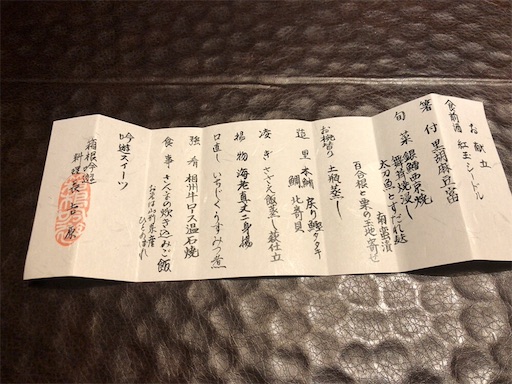 お献立
食前酒 紅玉シードル
箸付 黒胡麻豆富
旬菜 銀鱈西京焼
舞茸焼浸し
太刀魚と
南蛮漬
百合根と栗の玉地寄せ
お椀替り 土瓶蒸し
造里 本鮪 戻り鰹タタキ
鯛 北寄貝
凌ぎ さざえ飯蒸し 萩仕立
揚物 海老真丈二身揚
口直し いちじくうすみつ煮
強肴 相州牛ロース温石焼
食事 さんまの炊き込みご飯
お米は山形県産
ひとめぼれ
吟遊スイーツ
箱根吟遊
料理長 吉原